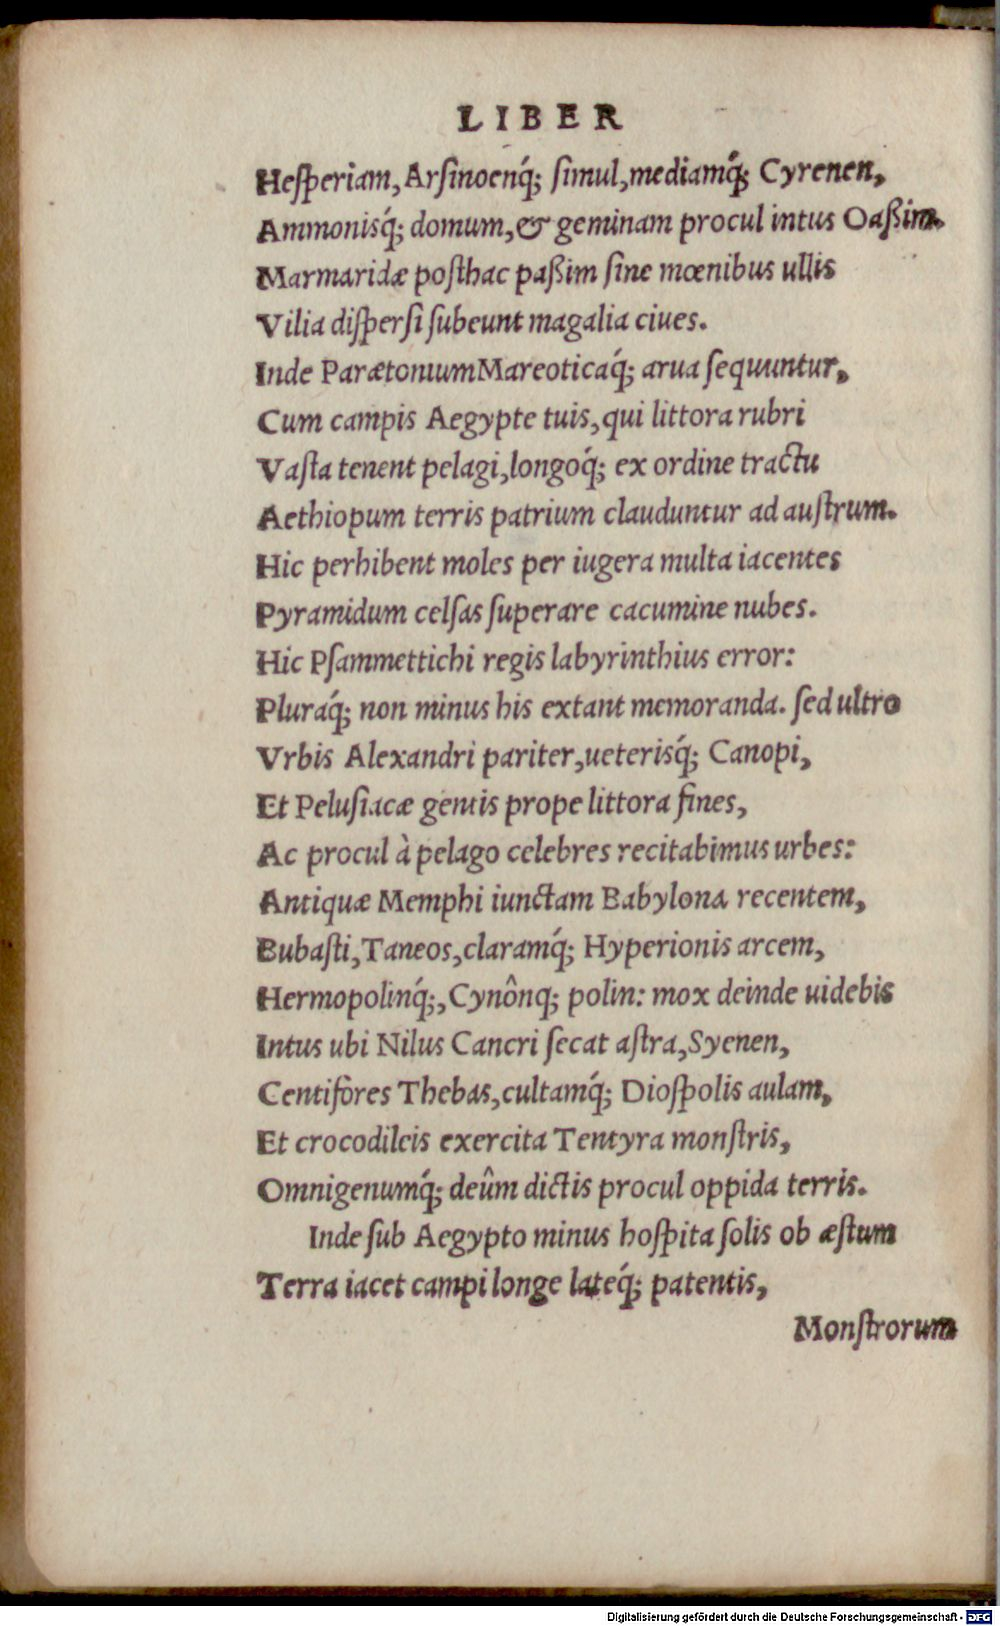 LIBER
Heſperiam, Arſinoenq́; ſimul, mediamq́; Cyrenen,
Ammonisq́; domum, & geminam procul intus Oaßim.
Marmaridæ poſthac paßim ſine mœnibus ullis
Vilia diſperſi ſubeunt magalia ciues.
Inde Parætonium Mareoticaq́; arua ſequuntur,
Cum campis Aegypte tuis, qui littora rubri
Vaſta tenent pelagi, longoq́; ex ordine tractu
Aethiopum terris patrium clauduntur ad auſtrum.
Hic perhibent moles per iugera multa iacentes
Pyramidum celſas ſuperare cacumine nubes.
Hic Pſammettichi regis labyrinthius error:
Pluraq́; non minus his extant memoranda. ſed ultro
Vrbis Alexandri pariter, ueterisq́; Canopi,
Et Peluſiacæ gentis prope littora fines,
Ac procul à pelago celebres recitabimus urbes:
Antiquæ Memphi iunctam Babylona recentem,
Bubaſti, Taneos, claramq́; Hyperionis arcem,
Hermopolinq́;, Cynônq; polin: mox deinde uidebis
Intus ubi Nilus Cancri ſecat aſtra, Syenen,
Centifores Thebas, cultamq́; Dioſpolis aulam,
Et crocodileis exercita Tentyra monſtris,
Omnigenumq́; deûm dictis procul oppida terris.
Inde ſub Aegypto minus hoſpita ſolis ob æſtum
Terra iacet campi longe lateq́; patentis,
Monſtrorum
Digitalisierung gefördert durch die Deutsche Forschungsgemeinschaft - DFG